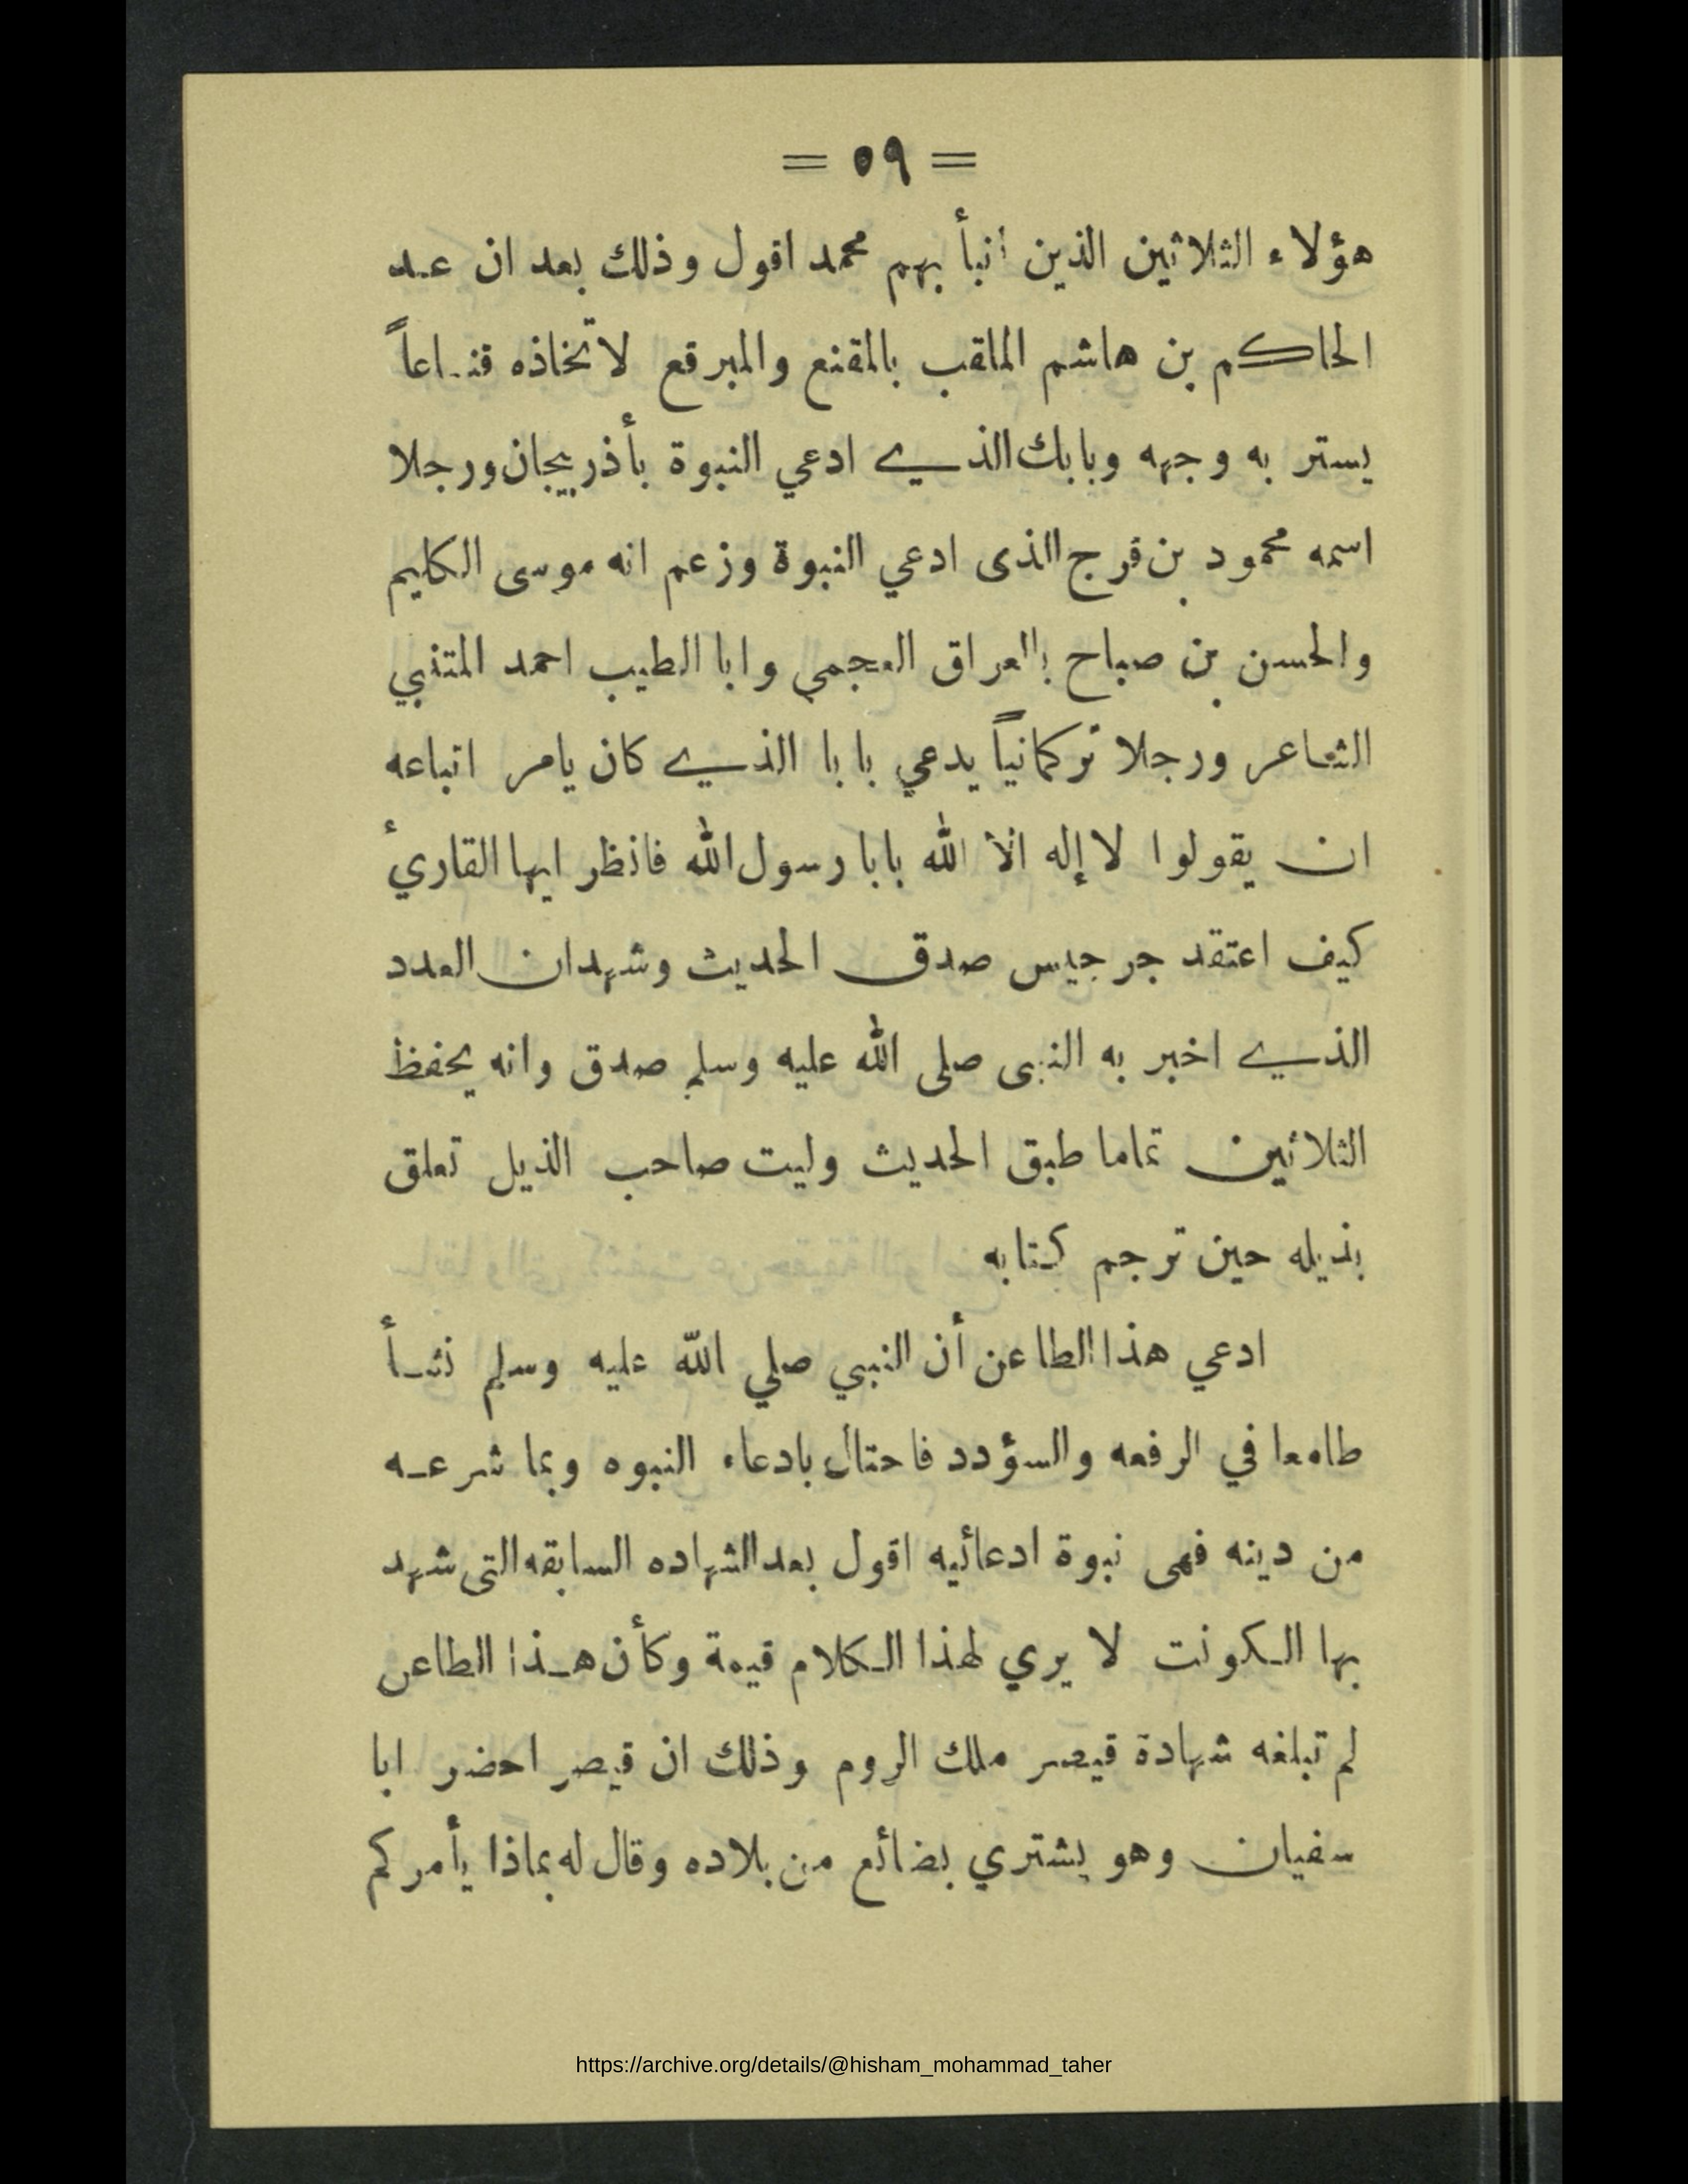 = ٥٩ =
هؤلاء الثلاثين الذين انبأ بهم محمد اقول وذلك بعد ان عد
الحاكم بن هاشم الملقب بالمقنع والمبرقع لاتخاذه قناعاً
يستر به وجهه وبابك الذي ادعي النبوة بأذربيجان ورجلا
اسمه محمود بن فرج الذى ادعي النبوة وزعم انه موسى الكليم
والحسن بن صباح بالعراق العجمي وابا الطيب احمد المتنبي
الشاعر ورجلا تركمانياً يدعي بابا الذي كان يامر اتباعه
ان يقولوا لا إله الا الله بابا رسول الله فانظر ايها القاريء
كيف اعتقد جرجيس صدق الحديث وشهدان العدد
الذي اخبر به النبى صلى الله عليه وسلم صدق وانه يحفظ
الثلاثين تماما طبق الحديث وليت صاحب الذيل تعلق
بذيله حين ترجم كتابه
ادعي هذا الطاعن أن النبي صلي الله عليه وسلم نشأ
طامعا في الرفعه والسؤدد فاحتال بادعاء النبوه وبما شرعه
من دينه فهى نبوة ادعائيه اقول بعد الشهاده السابقه التى شهد
بها الكونت لا يري لهذا الكلام قيمة وكأن هذا الطاعن
لم تبلغه شهادة قيصر ملك الروم وذلك ان قيصر احضر ابا
سفيان وهو يشتري بضائع من بلاده وقال له بماذا يأمركم
https://archive.org/details/@hisham_mohammad_taher